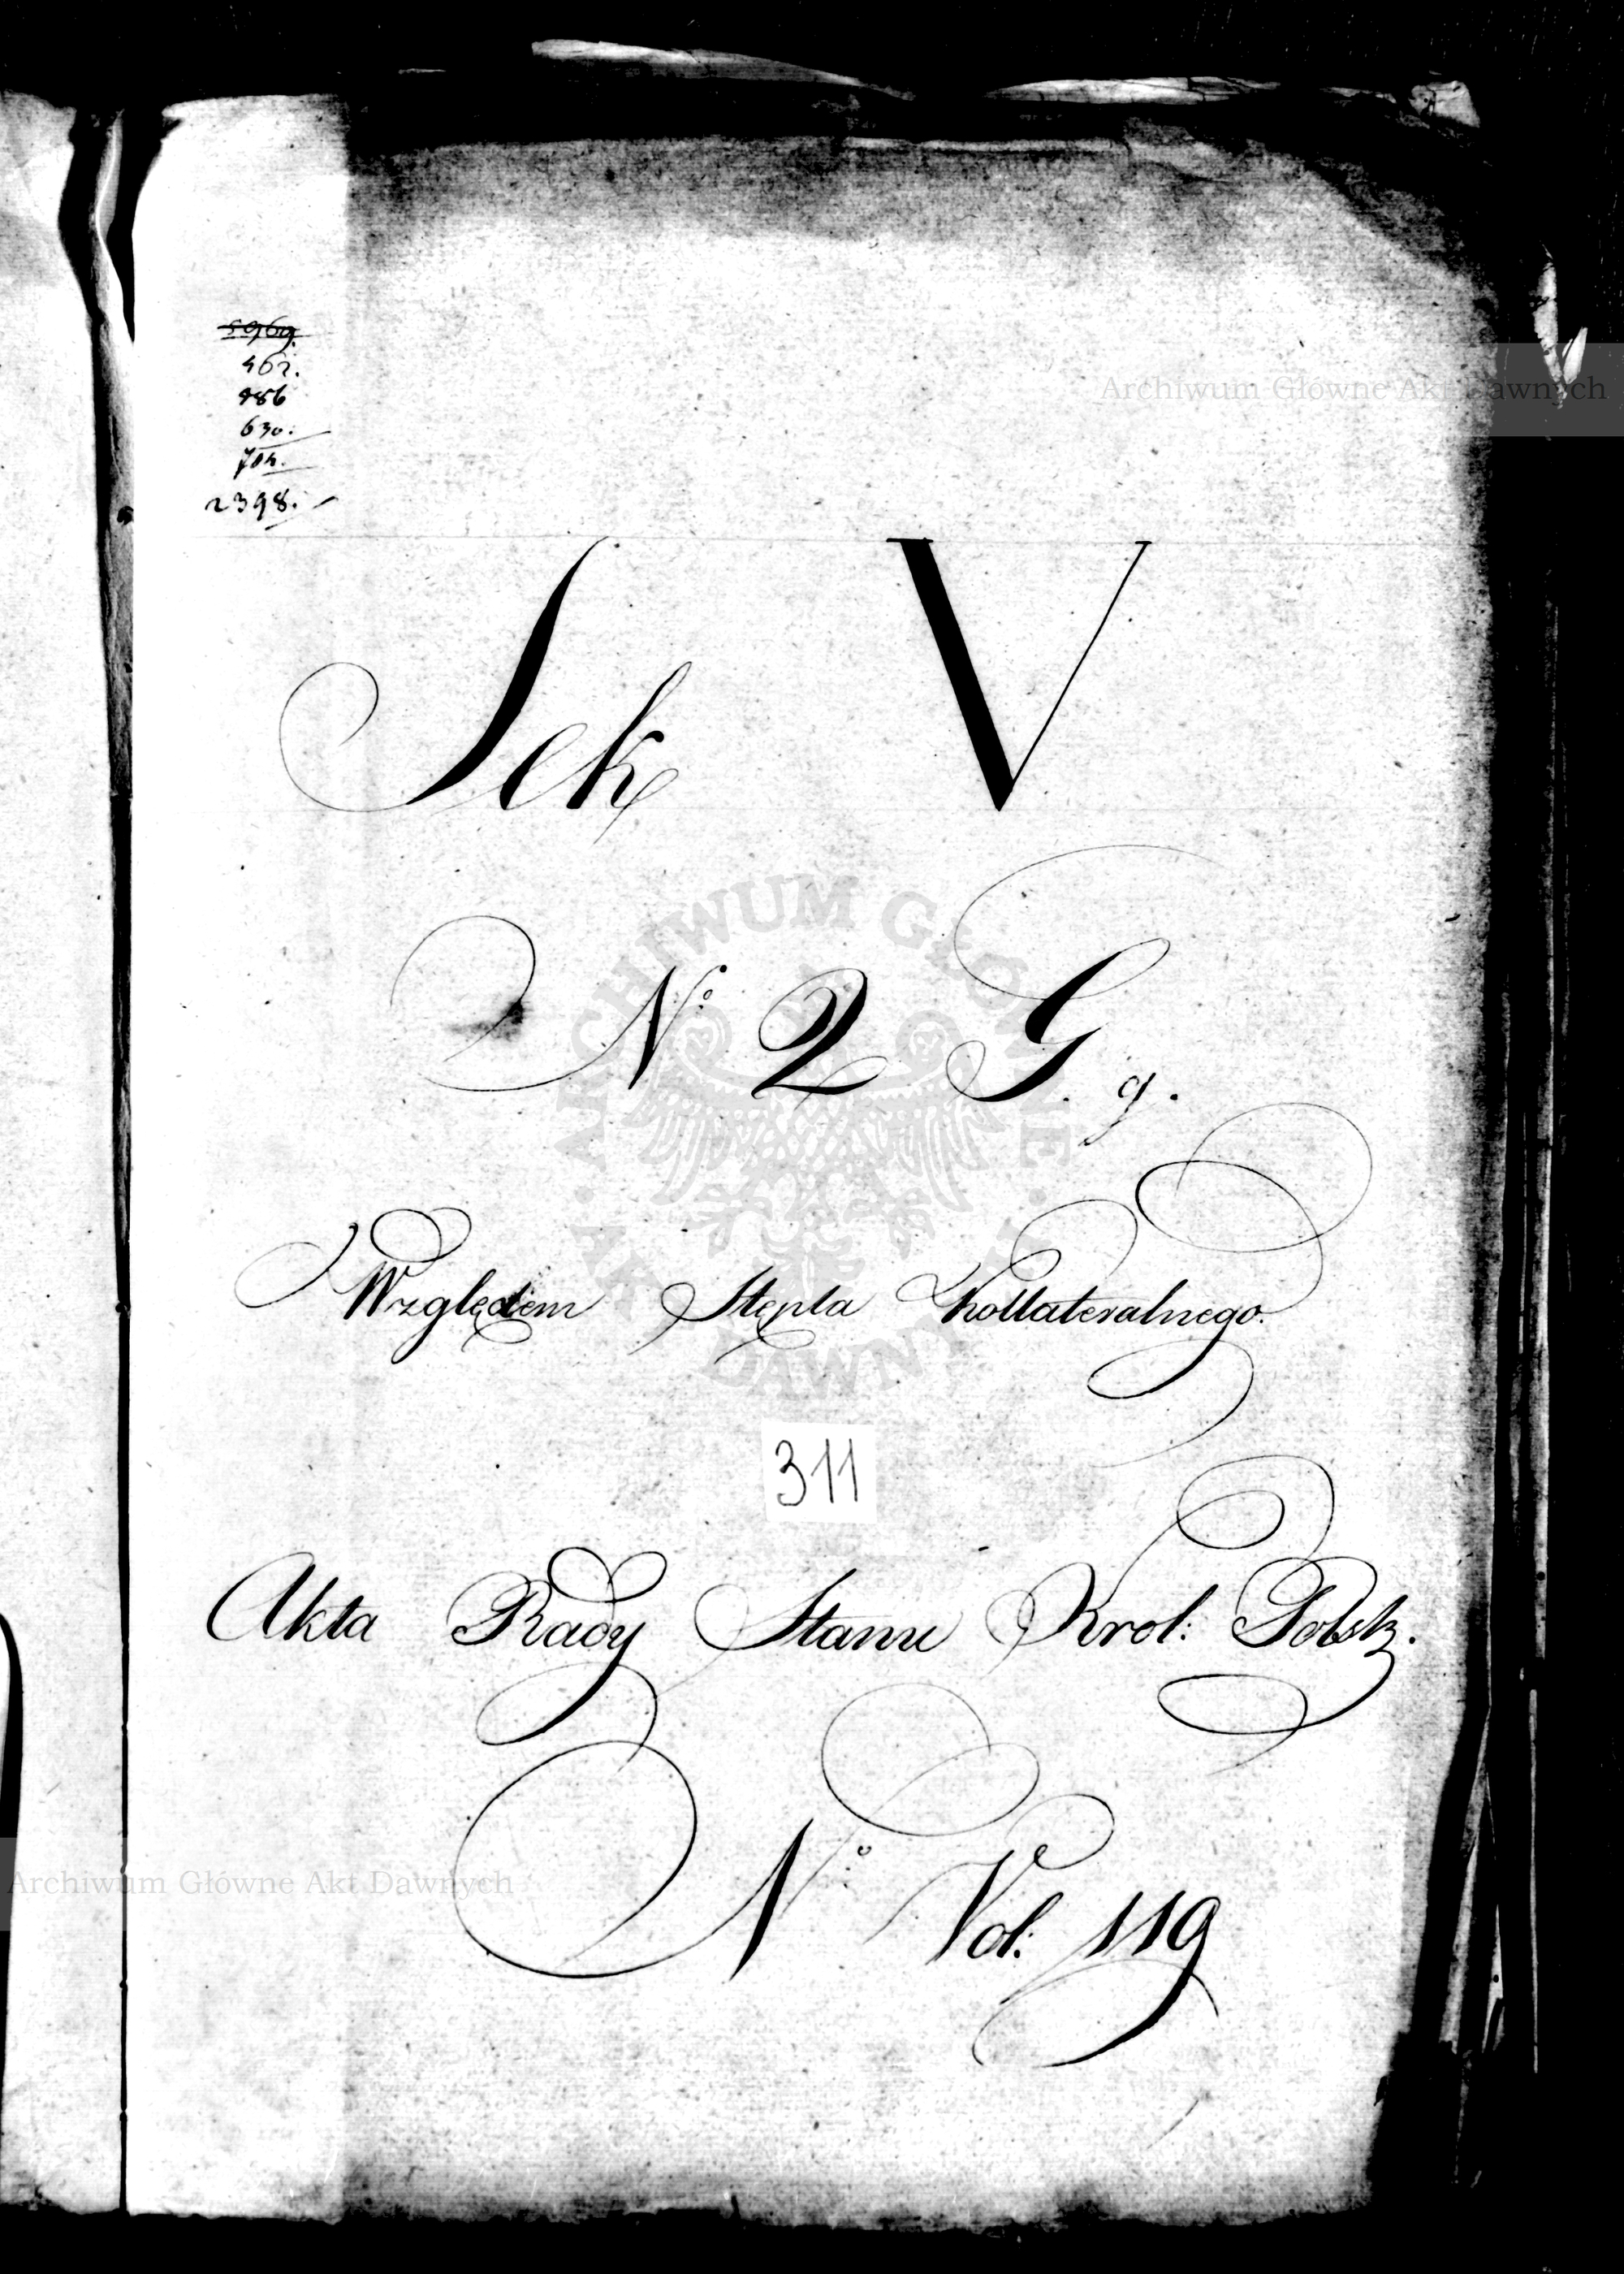 5969.
462.
986
630.
704.
2398.
Archiwum Główne Akt Dawnych
Sek V
ARCHIWUM GŁÓWNE AKT DAWNYCH
No 2 G. g.
Względem Stępla Kollateralnego.
311
Akta Rady Stanu Krol: Polsk.
Archiwum Główne Akt Dawnych
No Vol: 119